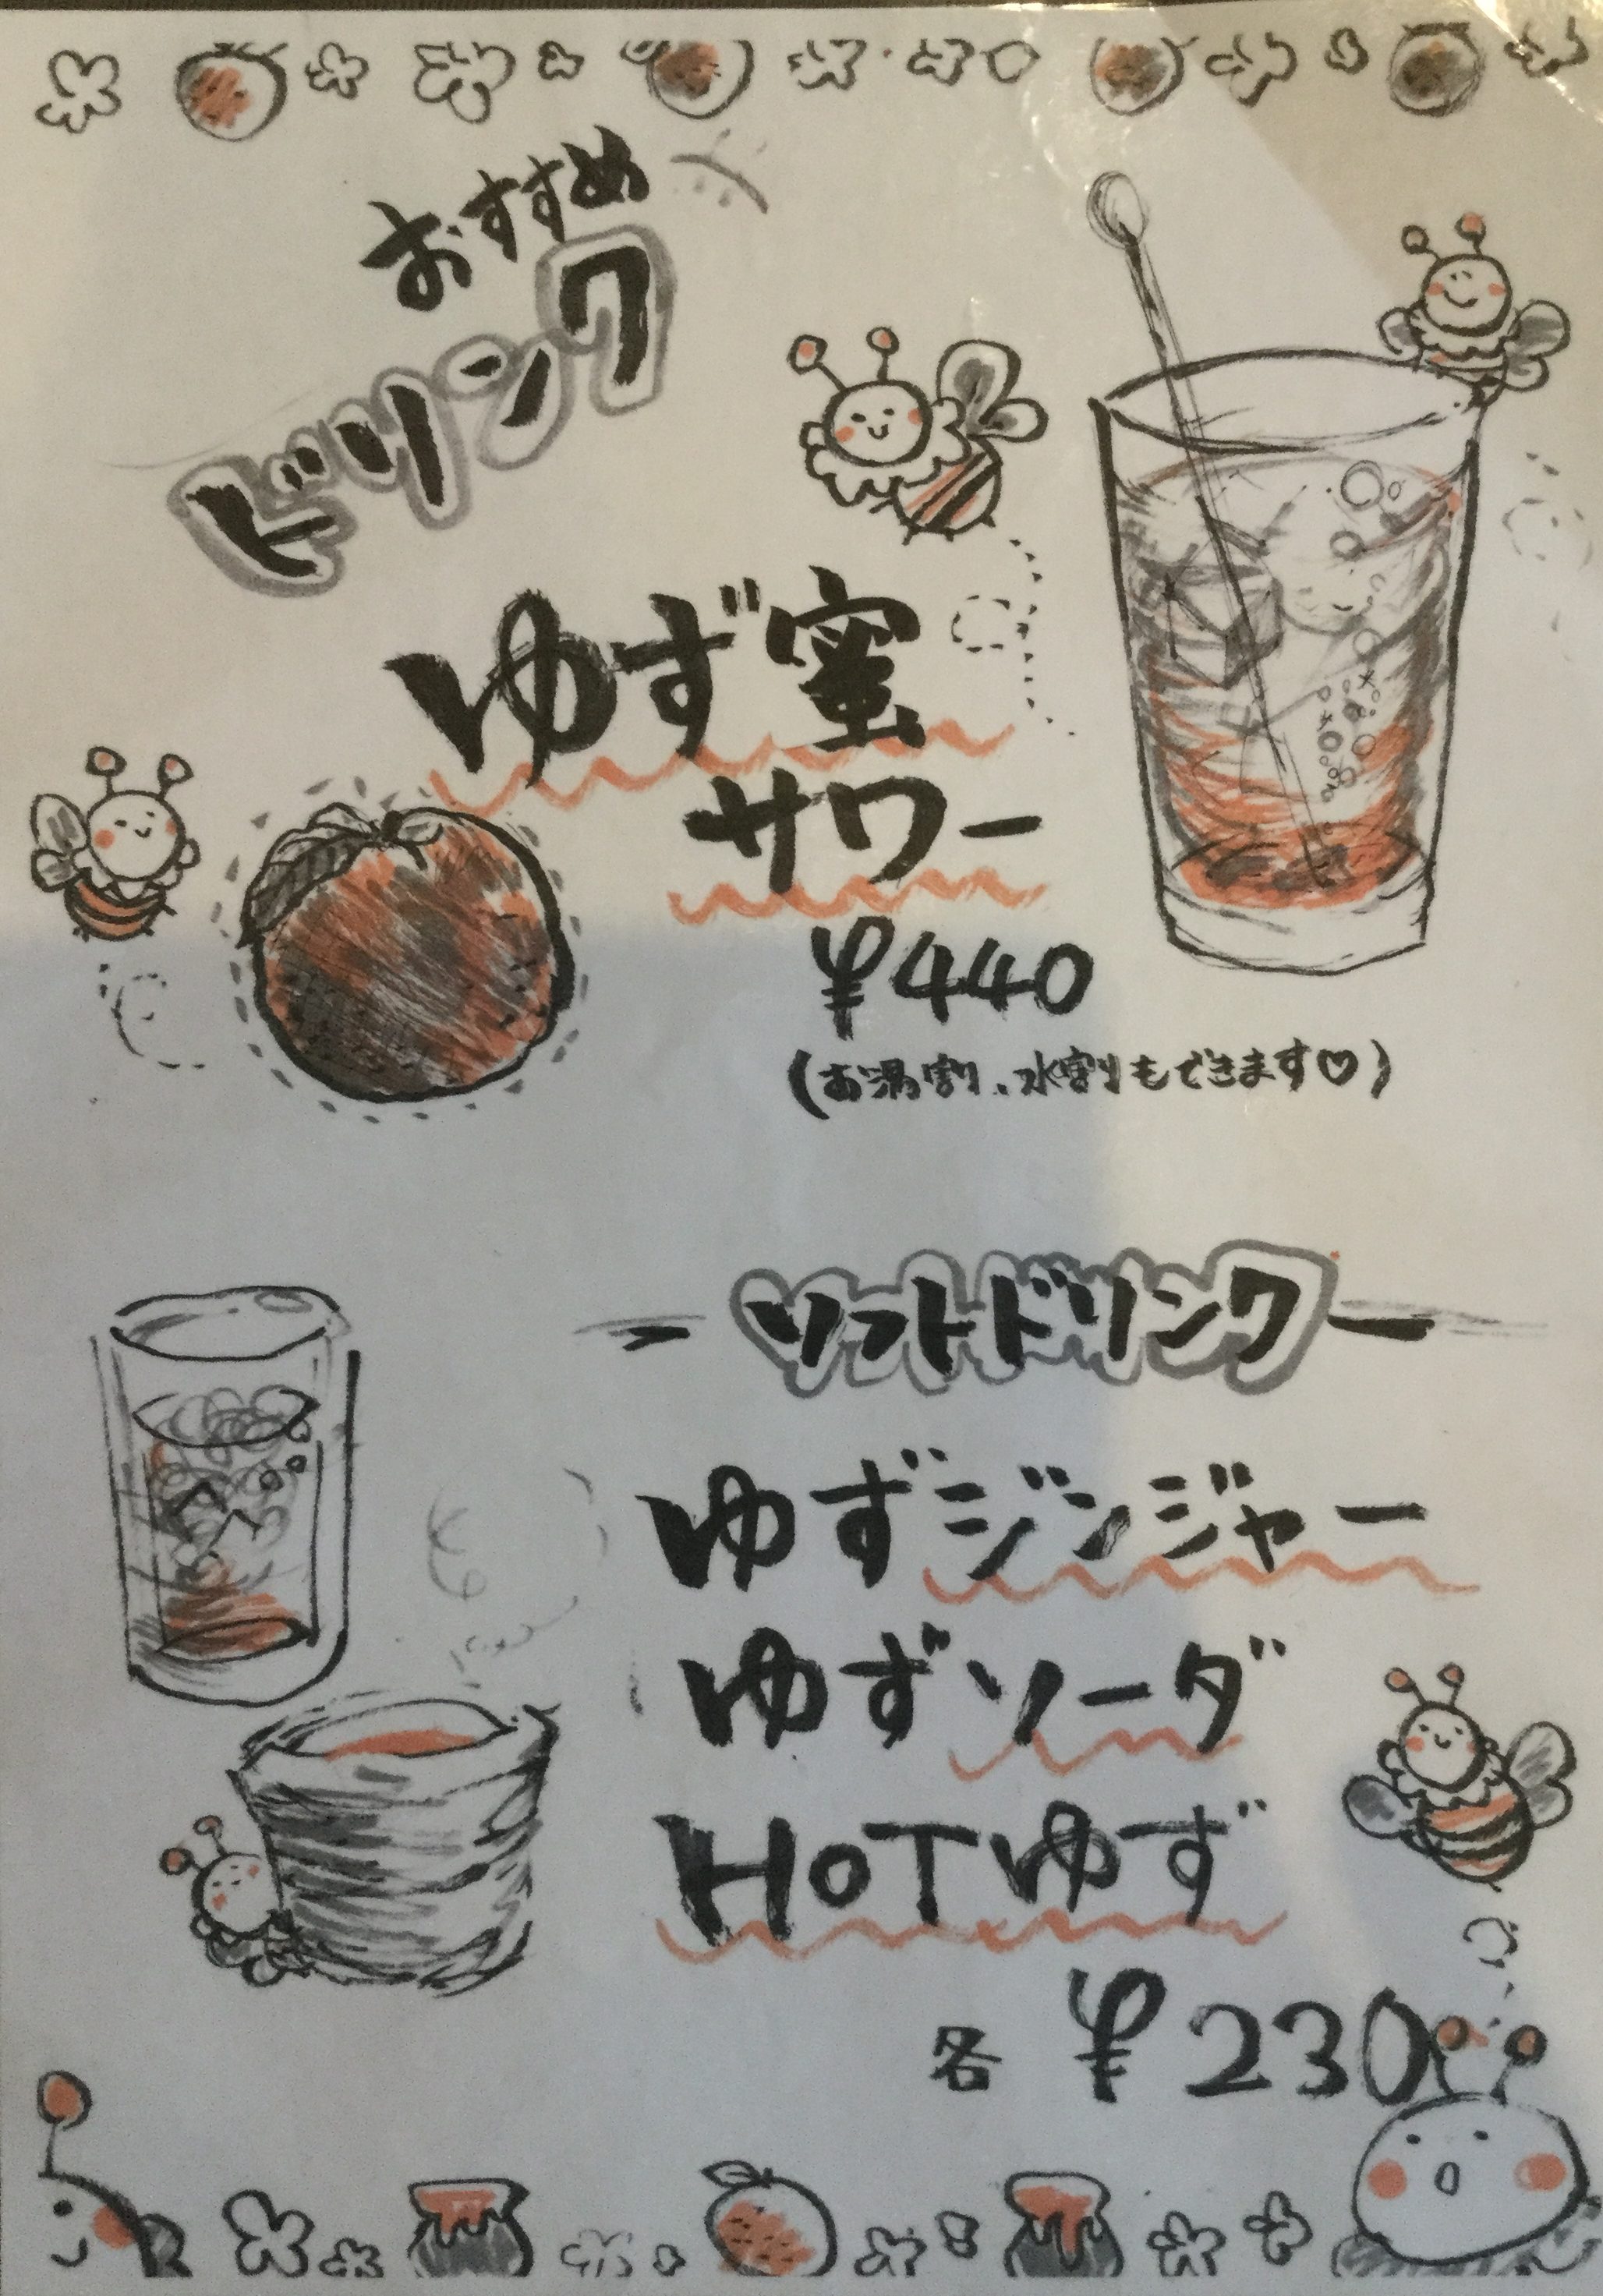 おすすめ
ドリンク
ゆず蜜
サワー
¥440
(お湯割、水割りもできます♡)
ソフトドリンク
ゆずジンジャー
ゆずソーダ
HOTゆず
各 ¥230